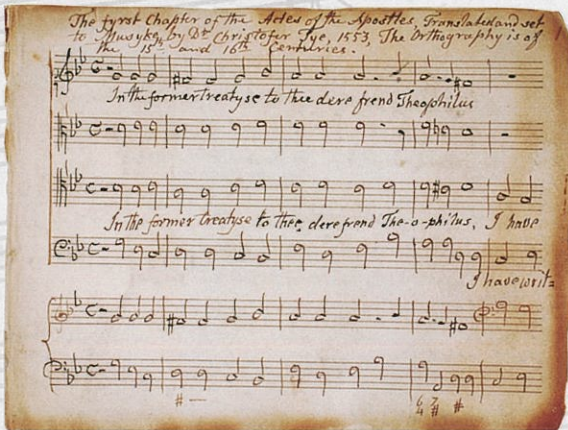 The fyrst Chapter of the Actes of the Apostles, Translated and set
to Musyke, by Dr. Christofer Tye, 1553, The Orthography is of
the 15th and 16th Centuries.
In the former treatyse to thee dere frend Theophilus
In the former treatyse to thee, dere frend The-o-philus, I have
I have writ=
# —
6 7 #
4 #